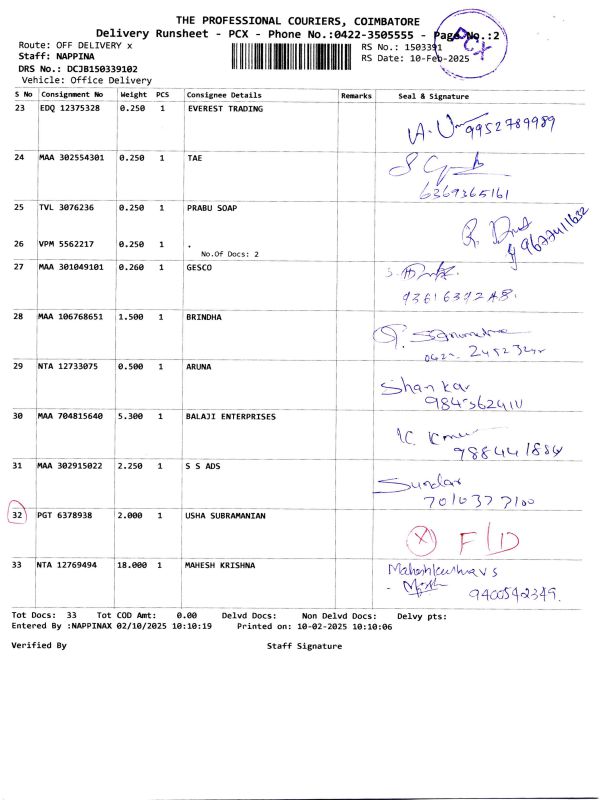 THE PROFESSIONAL COURIERS, COIMBATORE
Delivery Runsheet - PCX - Phone No.:0422-3505555 - Page No.:2
Route: OFF DELIVERY x
RS No.: 1503391
Staff: NAPPINA
RS Date: 10-Feb-2025
DRS No.: DCJB150339102
Vehicle: Office Delivery
S No Consignment No Weight PCS Consignee Details Remarks Seal & Signature
23 EDQ 12375328 0.250 1 EVEREST TRADING
9952789989
24 MAA 302554301 0.250 1 TAE
6369365161
25 TVL 3076236 0.250 1 PRABU SOAP
9677411632
26 VPM 5562217 0.250 1 .
No.Of Docs: 2
27 MAA 301049101 0.260 1 GESCO
28 MAA 106768651 1.500 1 BRINDHA
29 NTA 12733075 0.500 1 ARUNA
Shankar
30 MAA 704815640 5.300 1 BALAJI ENTERPRISES
31 MAA 302915022 2.250 1 S S ADS
Sundar
7010377100
32 PGT 6378938 2.000 1 USHA SUBRAMANIAN
X F/D
33 NTA 12769494 18.000 1 MAHESH KRISHNA
9400542349.
Tot Docs: 33 Tot COD Amt: 0.00 Delvd Docs: Non Delvd Docs: Delvy pts:
Entered By :NAPPINAX 02/10/2025 10:10:19 Printed on: 10-02-2025 10:10:06
Verified By Staff Signature